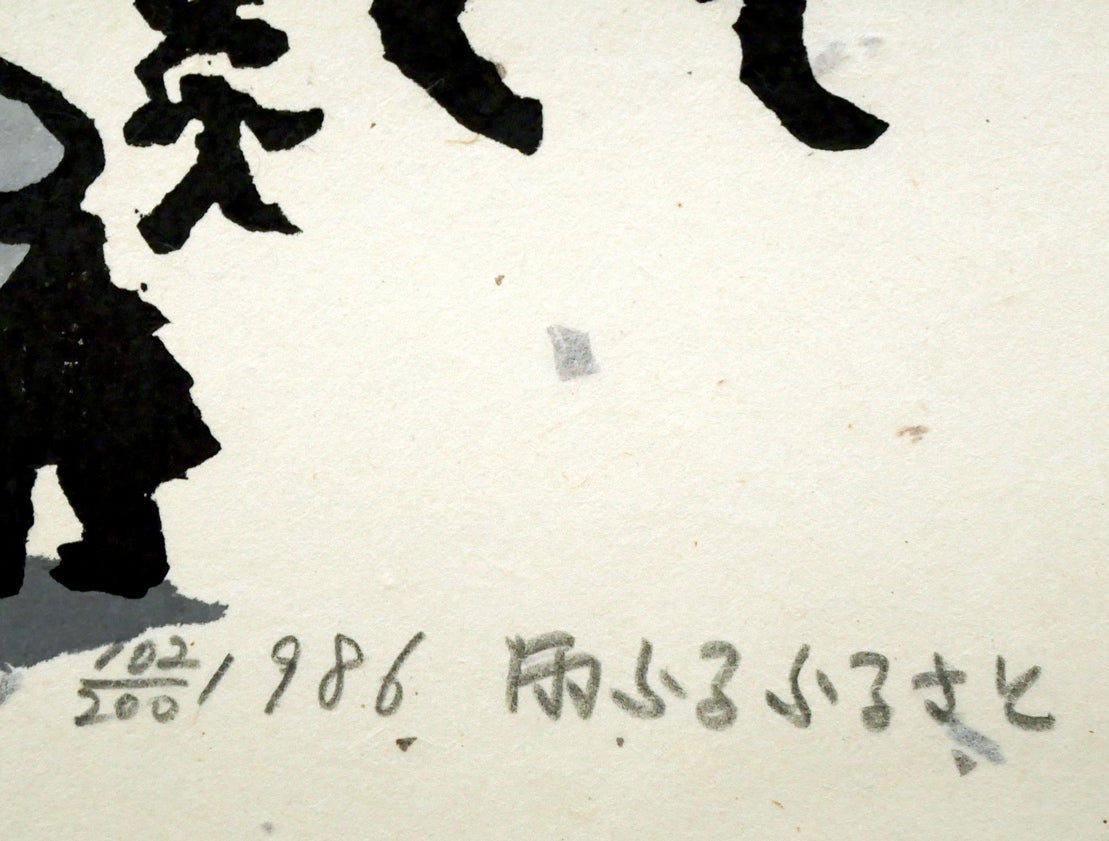 102/200, 1986 雨ふるふるさと